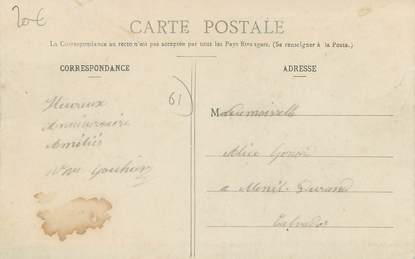 20€
CARTE POSTALE
La Correspondance au recto n'est pas acceptée par tous les Pays Étrangers. (Se renseigner à la Poste.)
CORRESPONDANCE
ADRESSE
61
Heureux
Anniversaire
Amitiés
Mademoiselle
Alice
a Menil-Durand
Calvados